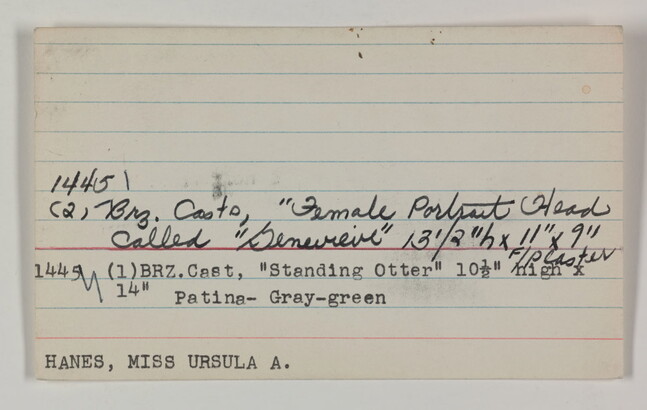 14451
(2) Brz. Casts, "Female Portrait Head
Called "Genevieve" 13 1/2 "h x 11" x 9"
F/Plaster
1445 (1)BRZ.Cast, "Standing Otter" 10½" high x
14" Patina- Gray-green
HANES, MISS URSULA A.